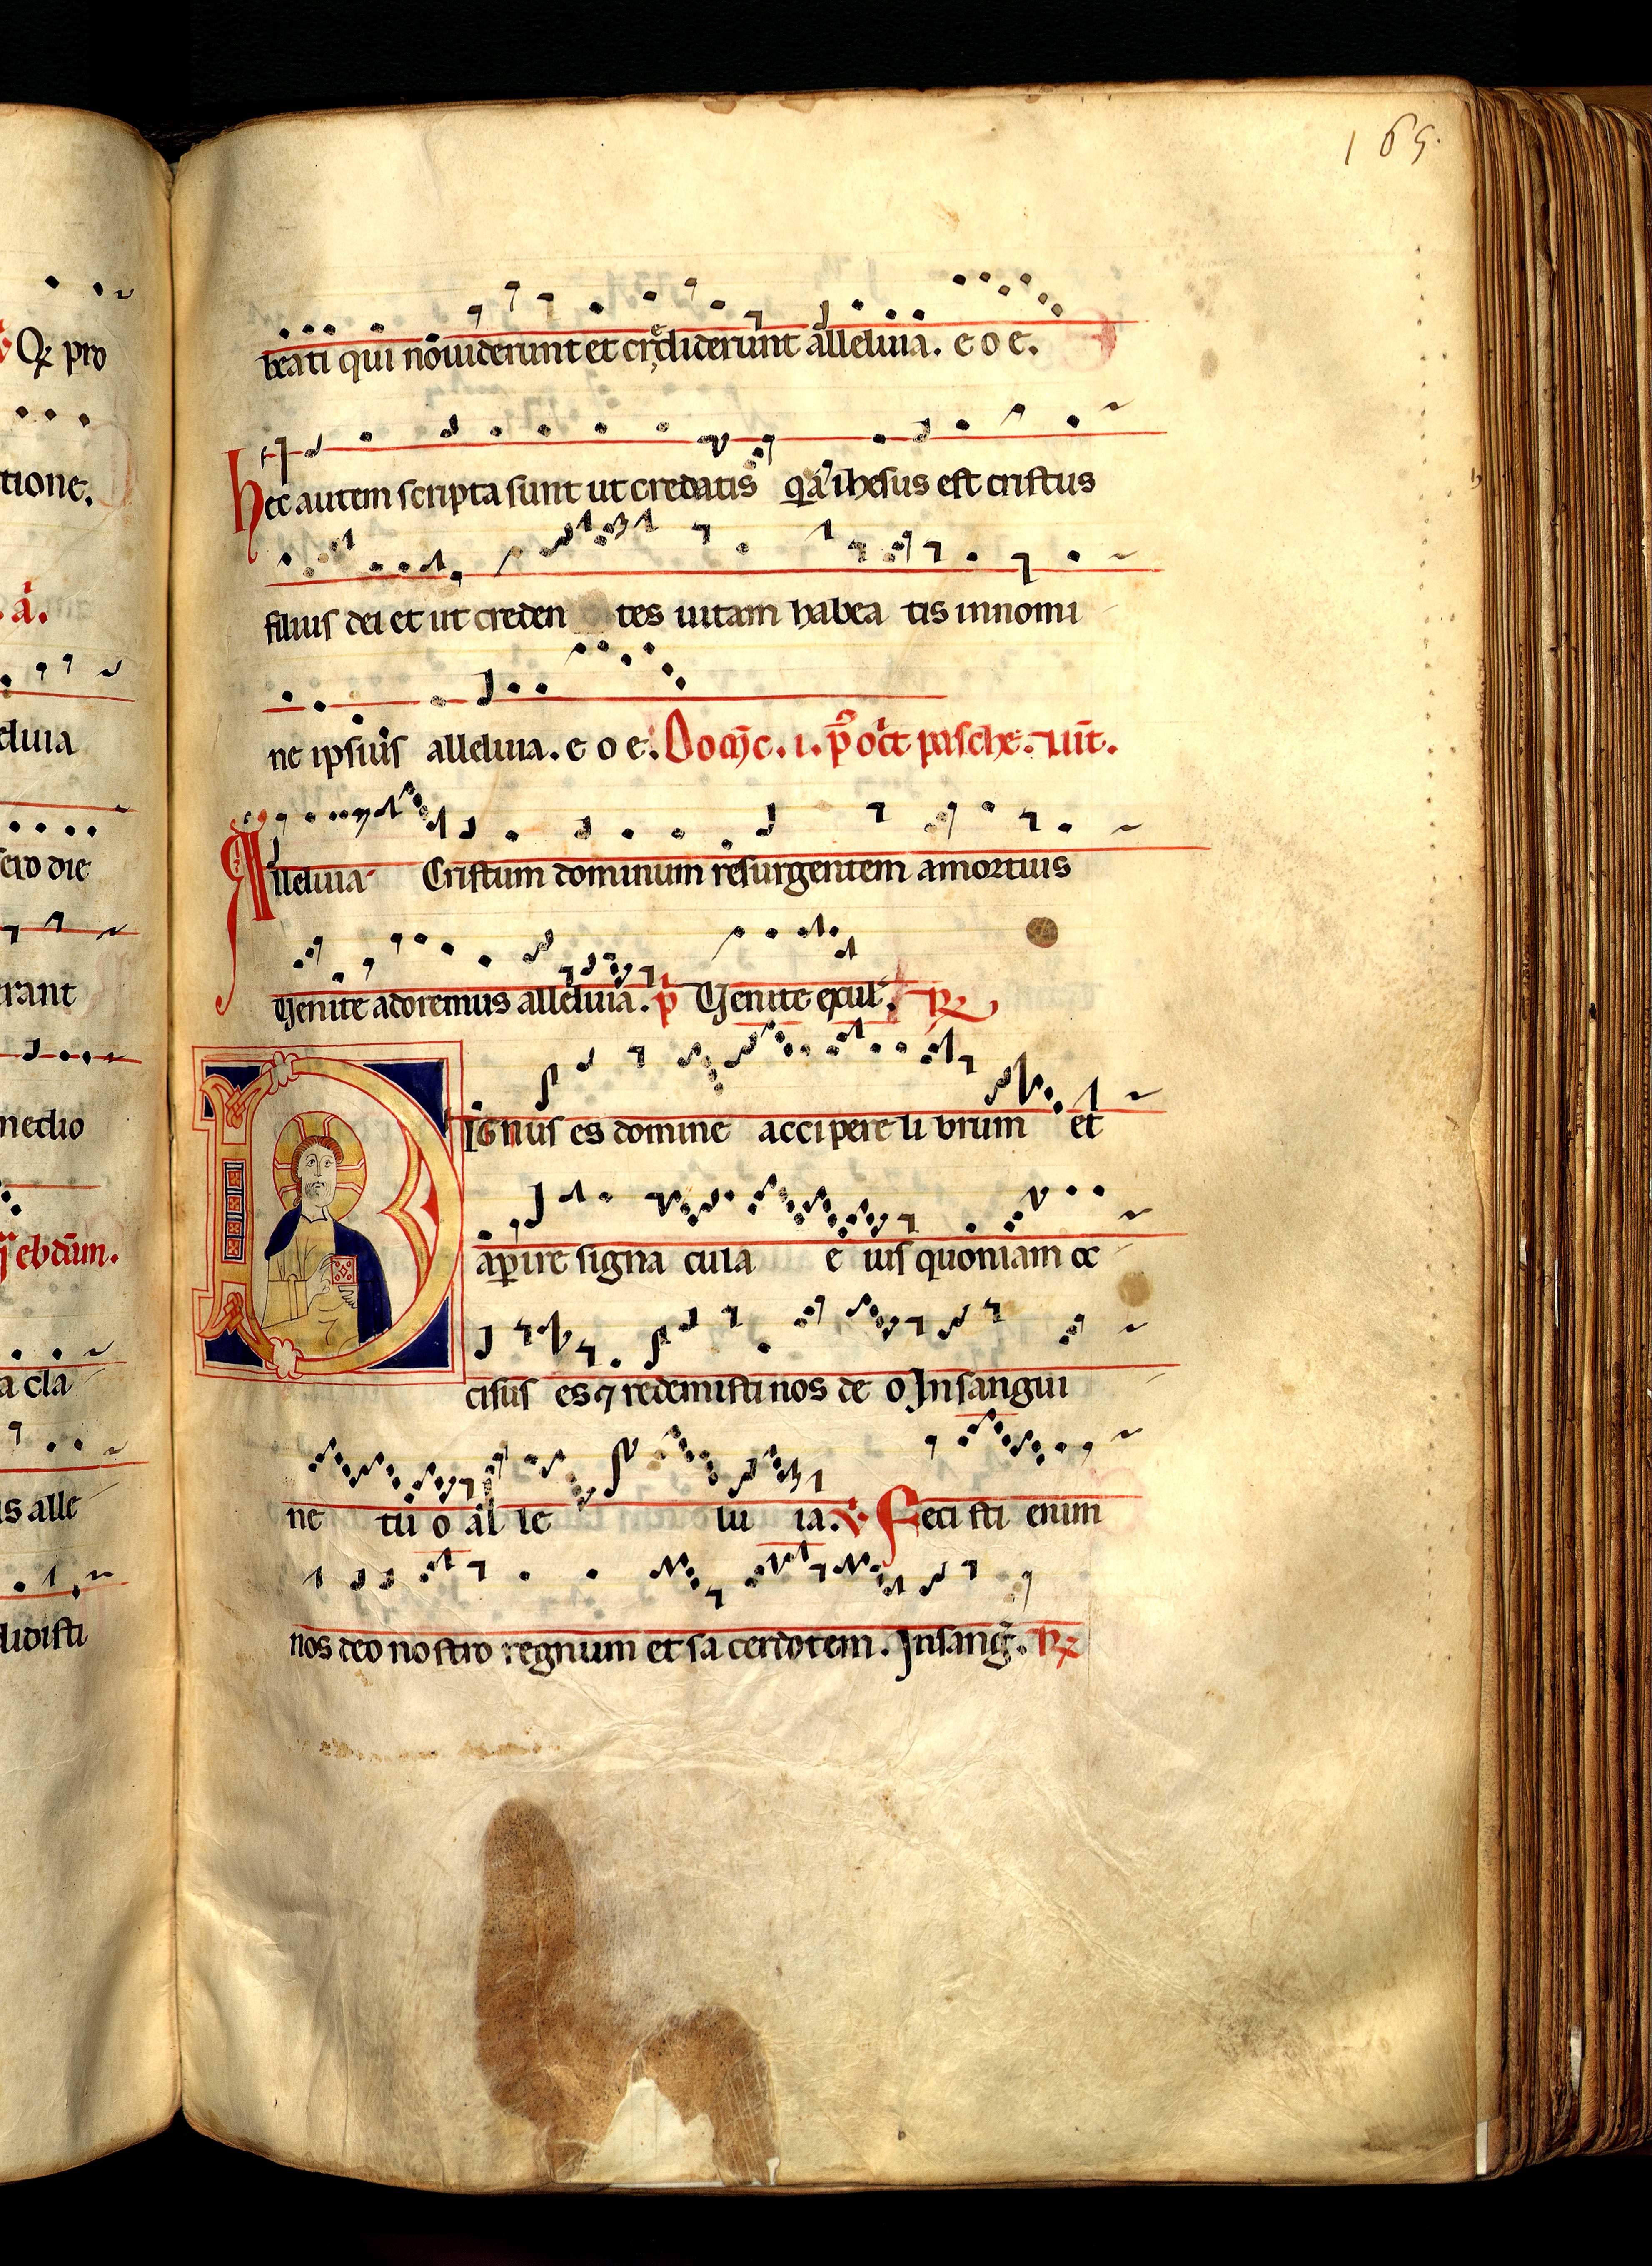 165.
beati qui nōuiderunt et crediderunt alleluia. e o e.
Hec autem scripta sunt ut credatis q̄a ihesus est cristus
filius dei et ut creden tes uitam habea tis innomi
ne ipsius alleluia. e o e. Domc̄. i. p̄ oct̄ pasche. uīt.
Alleluia Cristum dominum resurgentem amortuis
Uenite adoremus alleluia. p̄ Uenite exul̄. ℟
Dignus es domine accipere li brum et
aperire signa cula e ius quoniam oc
cisus es ⁊ redemisti nos de o Insangui
ne tu o al le lu ia. ℣ Feci sti enim
nos deo nostro regnum et sa cerdotem. Insanḡ. ℟
Qr pro
tione.
a.
eluia
sero die
erant
medio
ebdūm.
a cla
us alle
didisti